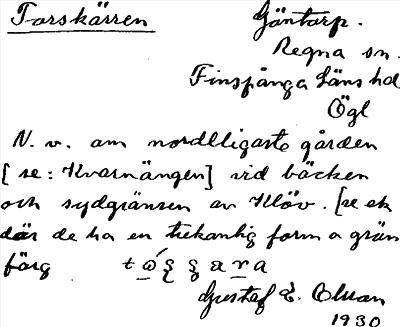 Torskärren Gäntorp.
Regna sn.
Finspånga läns hd
Ögl
N. v. om nordligaste gården
[se: Kvarnängen] vid bäcken
och sydgränsen av Klöv. [se ek
där de ha en trekantig form o grön
färg
Gustaf E.
1930